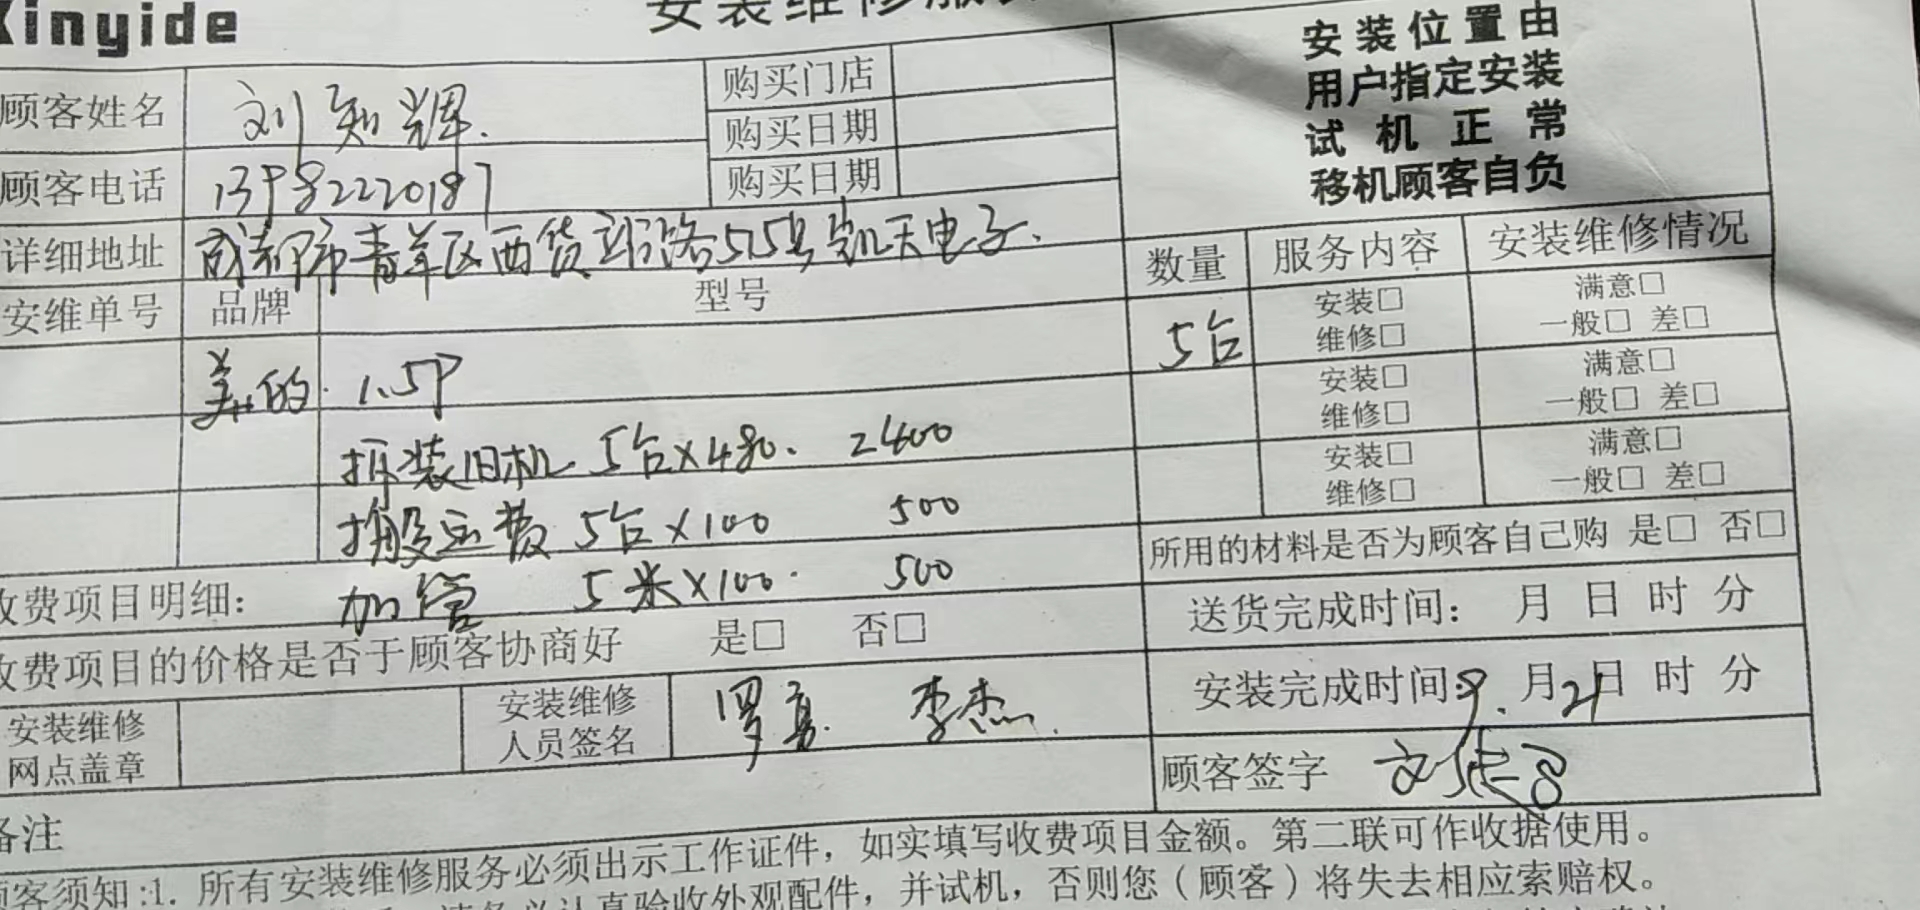 Xinyide
安装维修服
安装位置由
用户指定安装
试机正常
移机顾客自负
顾客姓名 刘知辉. 购买门店
购买日期
顾客电话 13982220187 购买日期
详细地址 成都市青羊区西货站路515号凯天电子.
安维单号 品牌 型号 数量 服务内容 安装维修情况
美的. 1.5P 5台 安装□ 维修□ 满意□ 一般□ 差□
拆装旧机 5台×480. 2400 安装□ 维修□ 满意□ 一般□ 差□
搬运费 5台×100 500 安装□ 维修□ 满意□ 一般□ 差□
收费项目明细: 加管 5米×100. 500 所用的材料是否为顾客自己购 是□ 否□
收费项目的价格是否于顾客协商好 是□ 否□ 送货完成时间: 月 日 时 分
安装完成时间: 9.月21日 时 分
安装维修
网点盖章
安装维修
人员签名
李杰.
顾客签字
备注
顾客须知:1. 所有安装维修服务必须出示工作证件，如实填写收费项目金额。第二联可作收据使用。
认真验收外观配件，并试机，否则您（顾客）将失去相应索赔权。